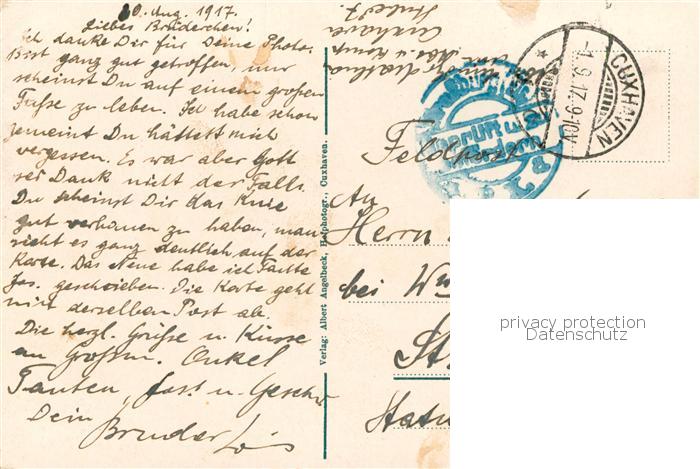 30. Aug. 1917.
Liebes Brüderchen!
Ich danke Dir für Deine Photo.
Bist ganz gut getroffen, nur
scheinst Du auf einem großen
Fuße zu leben. Ich habe schon
gemeint Du hättest mich
vergessen. Es war aber Gott
sei Dank nicht der Falls.
Du scheinst Dir das Knie
gut verhauen zu haben, man
sieht es ganz deutlich auf der
Karte. Das Neue habe ich Tante
Jos. geschrieben. Die Karte geht
mit derselben Post ab.
Die herzl. Grüße u. Küsse
an Großm. Onkel
Tanten, Jos. u. Geschw.
Dein
Bruder
Verlag: Albert Angelbeck, Hofphotogr., Cuxhaven.
Cuxhaven
CUXHAVEN
-1.9.17.9-10V.
Feldpost
An
Herrn
bei
St
privacy protection
Datenschutz